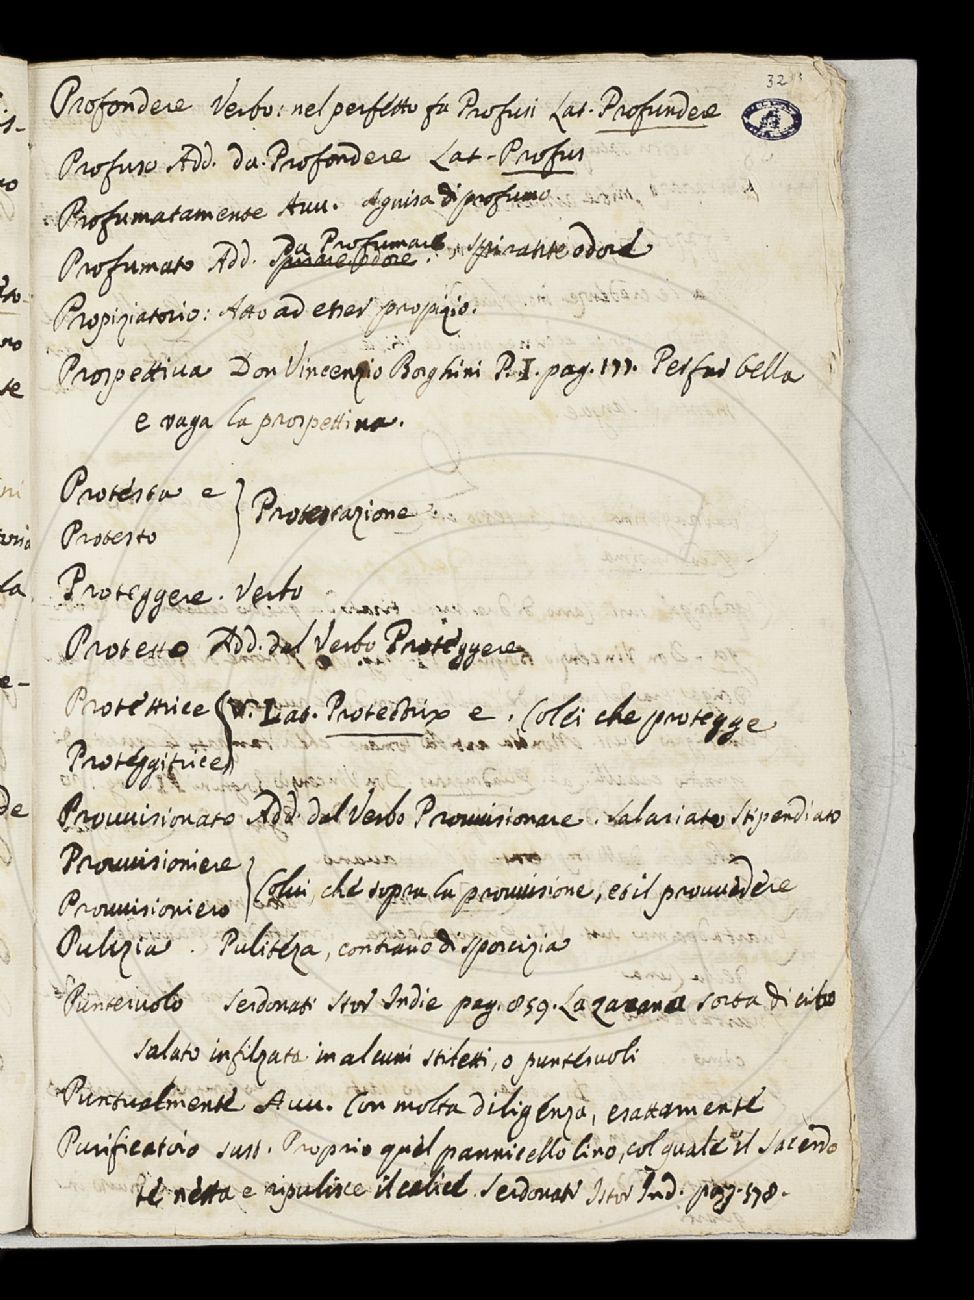 32
Profondere Verbo: nel perfetto fa Profusi Lat. Profundere
Profuso Add. da Profondere Lat. Profus
Profumatamente Avv. Aguisa di profumo
da Profumare
Profumato Add. spirare odore, spirante odore
Propiziatorio: Atto ad esser propizio.
Prospettiva Don Vincenzio Borghini P. I. pag. 177. Per far bella
e vaga la prospettiva.
Protesta e
Protestazione.
Protesto
Proteggere. Verbo
Protetto Add. dal Verbo Proteggere
Protettrice V. Lat. Protectrix e. Colei che protegge
Proteggitrice
Provvisionato Add. dal Verbo Provvisionare. Salariato Stipendiato
Provvisioniere
Colui, che sopra la provvisione, et il provvedere
Provvisioniero
Pulizia. Pulitezza, contrario di sporcizia
Punteruolo Serdonati Stor Indie pag. 859. La zarana sorta di cibo
salato infilzato in alcuni stiletti, o punteruoli
Puntualmente Avv. Con molta diligenza, esattamente
Purificatoio sust. Proprio quel pannicello lino, col quale il Sacerdo
te netta e ripulisce il calice Serdonati Istor Ind. pag. 578.